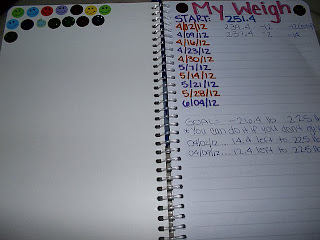 My Weigh
START: 251.4
4/2/12 239.4
4/09/12 237.4 -2
4/16/12
4/23/12
4/30/12
5/7/12
5/14/12
5/21/12
5/28/12
6/04/12
GOAL= -26.4 to 225 lb
*You can do it if you don't
04/02/12... 14.4 left to 225 lb
04/09/12... 12.4 left to 225 lb